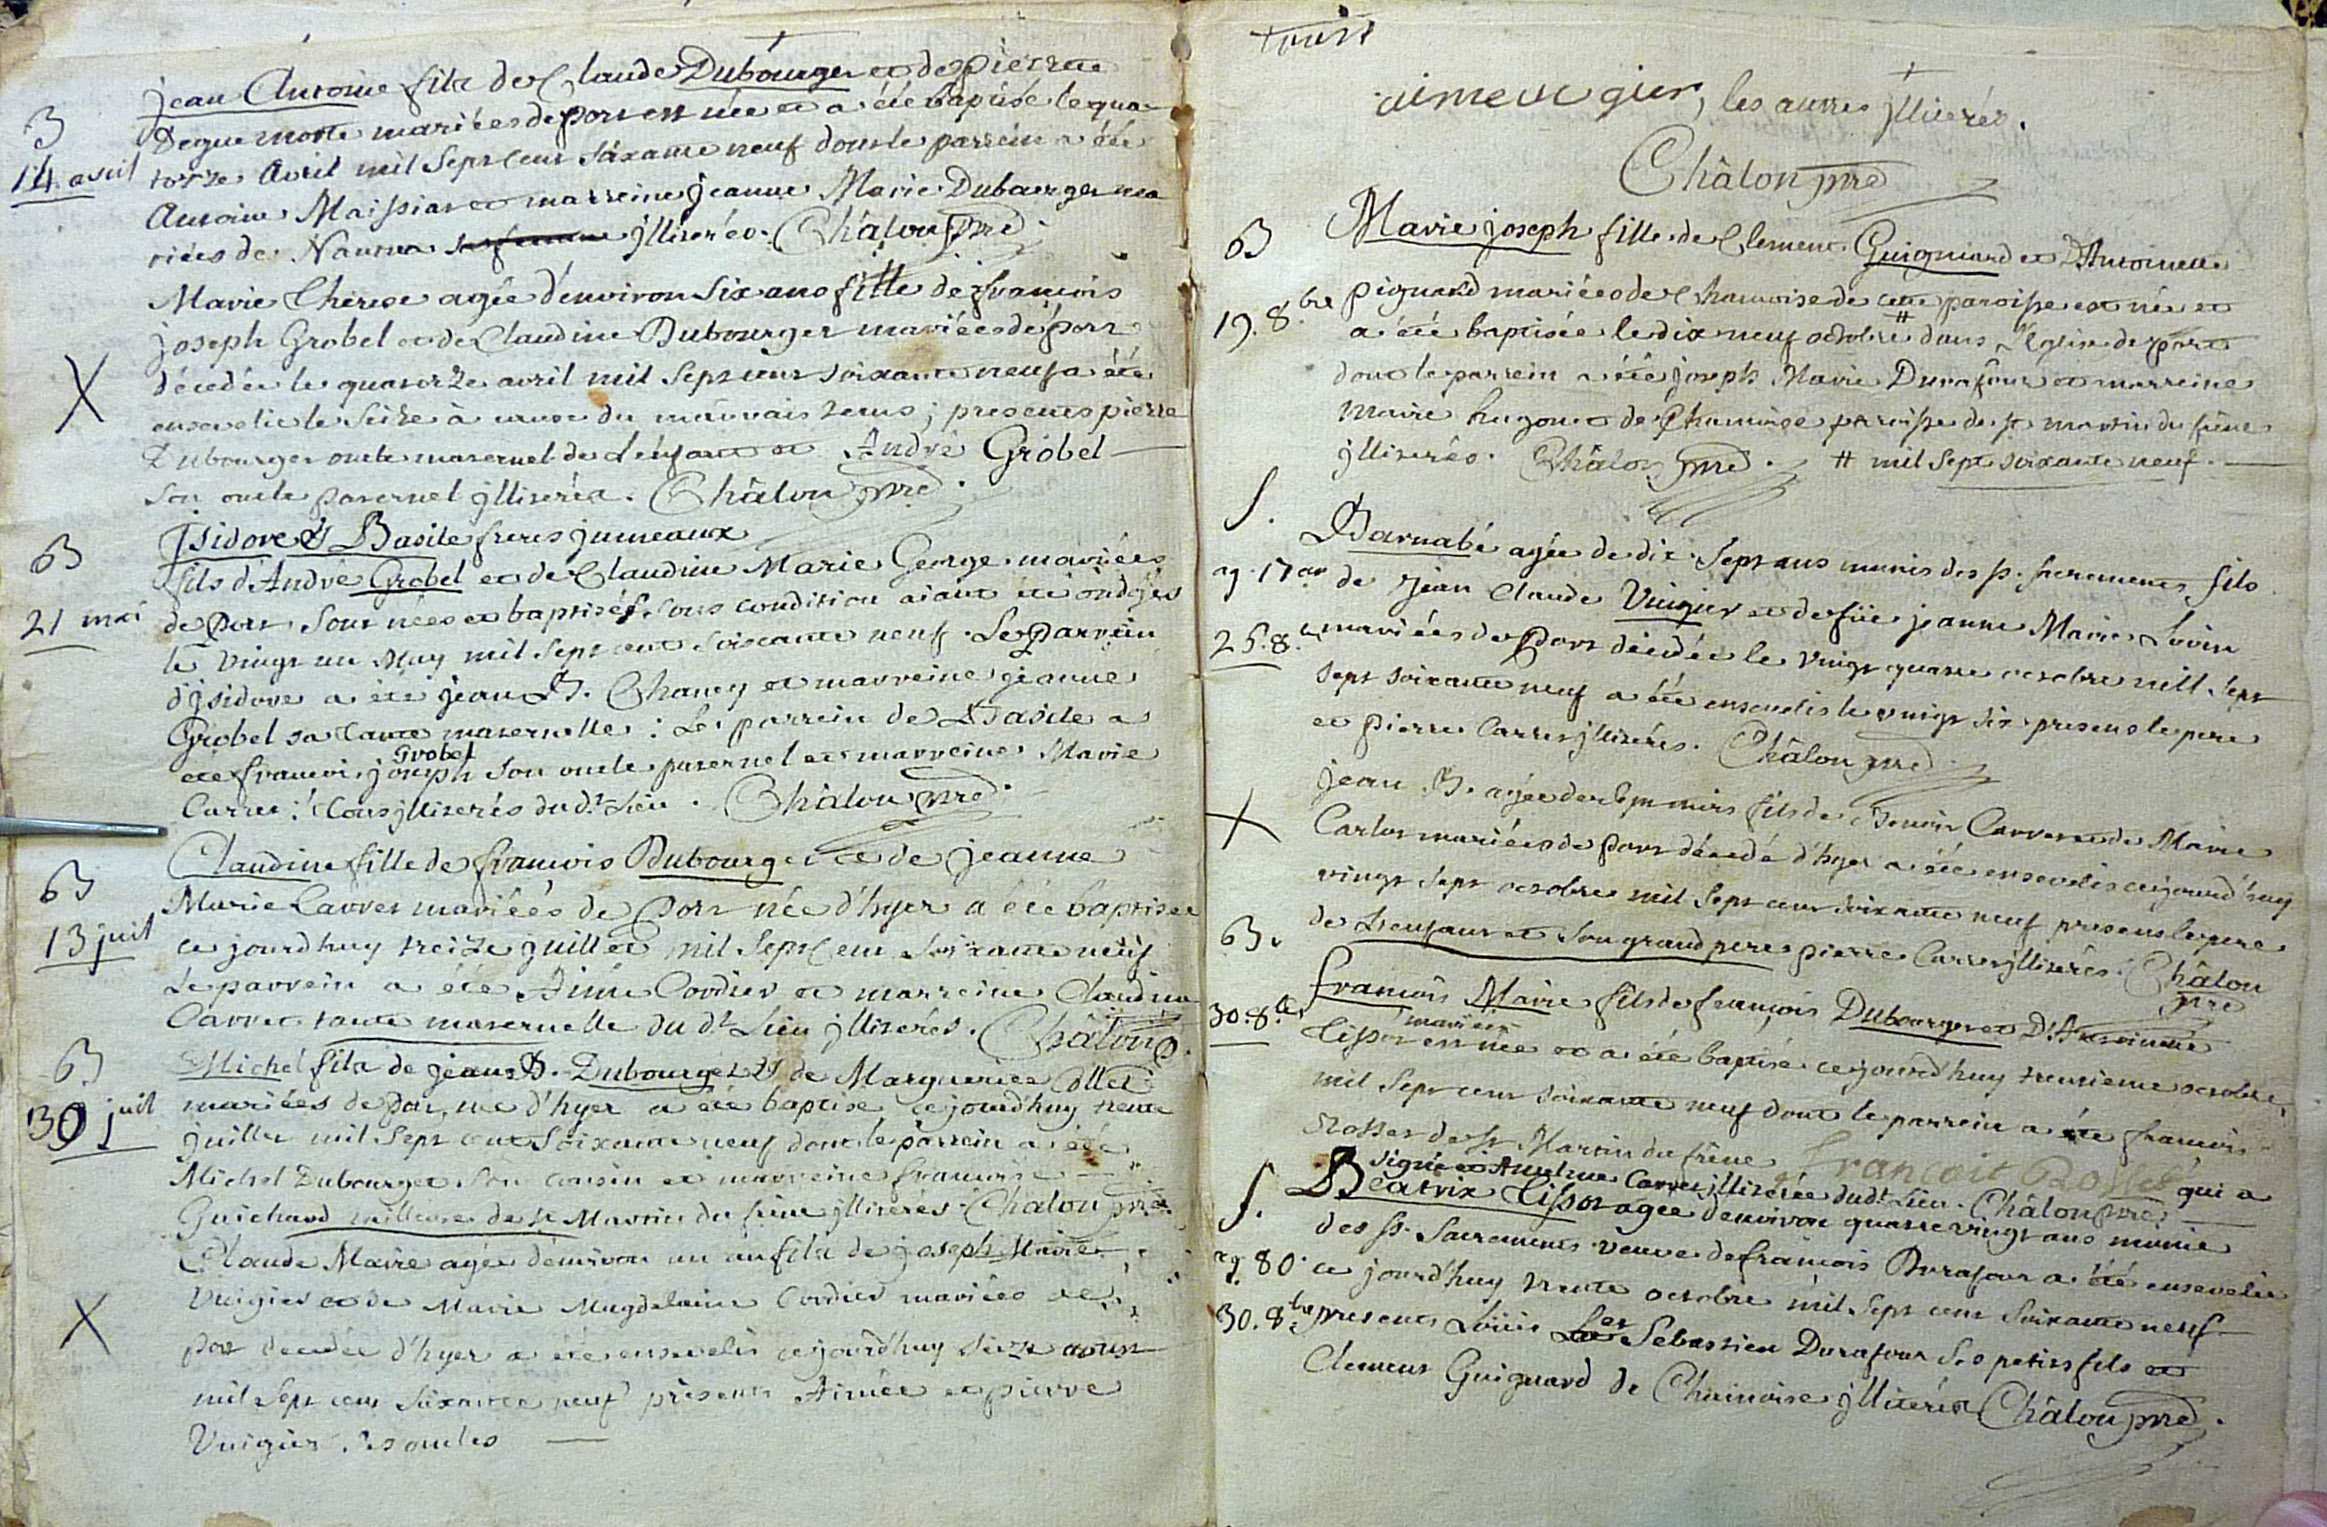 B
14. avril
jean Antoine fils de Claude Dubourger et de pierrette
Deguemotte mariées de port est née et a été baptisé le qua-
torze Avril mil Sept Cent Soixante neuf dont le parrein a été
Antoine Maissiat et marreine jeanne Marie Dubourger ma
riées de Nantua jlliterés. Châlon pre
Marie Therese agée d'environ Six ans fille de françois
joseph Grobel et de Claudine Dubourger mariées de port
X
décedée le quatorze avril mil Sept cent soixante neuf a été
ensevelie le Seize à cause du mauvais tems ; presents pierre
Dubourger oncle maternel de L'enfant et André Grobel
Son oncle paternel jlliterés. Châlon pre.
B
21 mai
Jsidore & Basile freres jumeaux
fils d'André Grobel et de Claudine Marie George mariées
de Port Sont nées et baptisés Sous condition aiant été ondoyés
le Vingt un May mil Sept cent Soixante neuf. Le Parrein
d'jsidore a été jean B. Chaney et marreine jeanne
Grobel sa tante maternelle : Le parrein de Basile a
été françois joseph Grobel Son oncle paternel et marreine Marie
Carret : tous jlliterés du dt Lieu. Châlon pre.
B
13 juil
Claudine fille de françois Dubourger et de jeanne
Marie Carret mariées de Port née d'hyer a été baptisée
ce jourd'huy treize juillet mil Sept Cent Soixante neuf
Le parrein a été Aimé Cordier et marreine Claudine
Carret tante maternelle du dt Lieu jlliterés. Châlon p.
B
30 juil
Michel fils de jean B. Dubourger & de Marguerite Ollet
mariées de Port, né d'hyer a été baptisé ce jourd'huy trente
juillet mil Sept cent Soixante neuf dont le parrein a été
Michel Dubourger Son cousin et marreine françoise
Guichard de st Martin du frêne jlliterés. Chalon pre.
Claude Marie agée d'environ un an fils de joseph Marie
Vuigier et de Marie Magdelaine Cordier mariées de
X
port decedée d'hyer a été ensevelis ce jourd'huy Seize aoust
mil Sept cent Soixante neuf présents Aimée et pierre
Vuigier, Ses oncles
aime vugier, les autres jlliterés.
Châlon pre
B
19. 8.bre
Marie joseph fille de Clement Guignard et D'Antoinette
pignard mariées de Chamoise de cette paroisse est née et
a été baptisée le dix neuf octobre # dans L'église de port
dont le parrein a été joseph Marie Durafour et marreine
Marie hugonet de Chamoise parroisse de st martin du frêne
jlliterés. Châlon pre. # mil Sept soixante neuf.
S.
ag. 17 an
25. 8.e
Barnabé agée de dix Sept ans munis des ss. sacrements fils
de jean Claude Vuigier et de füe jeanne Marie Savin
mariées de Port décédée le Vingt quatre octobre mill Sept
Sept soixante neuf a été ensevelis le vingt six presens le pere
et pierre Carret jlliterés. Châlon pre.
X
jean B. agée de sept mois fils de Benoit Carret et de Marie
Carlot mariées de Port décedé d'hyer a été ensevelis cejourd'huy
vingt Sept octobre mil Sept cent soixante neuf presens le pere
de L'enfant et Son grand pere pierre Carret jlliterés. Châlon
pre
B.
30. 8.bre
françois Marie fils de françois Dubourger et D'Antoinette
Tissot mariées est née et a été baptisé cejourd'huy trentieme octobre
mil Sept cent soixante neuf dont le parrein a été françois
Rosset de st Martin du frêne françois Rosset qui a
signé et Anselme Carret jlliterée dudt Lieu. Châlon pre.
S.
ag. 80.
30. 8.bre
Béatrix Tissot agée denviron quatre vingt ans munie
des ss. Sacrements veuve de françois Durafour a été ensevelie
ce jourd'huy trente octobre mil Sept cent Soixante neuf
presents Loüis et Sebastien Durafour Ses petits fils et
Clement Guignard de Chamoise jlliterés Châlon pre.